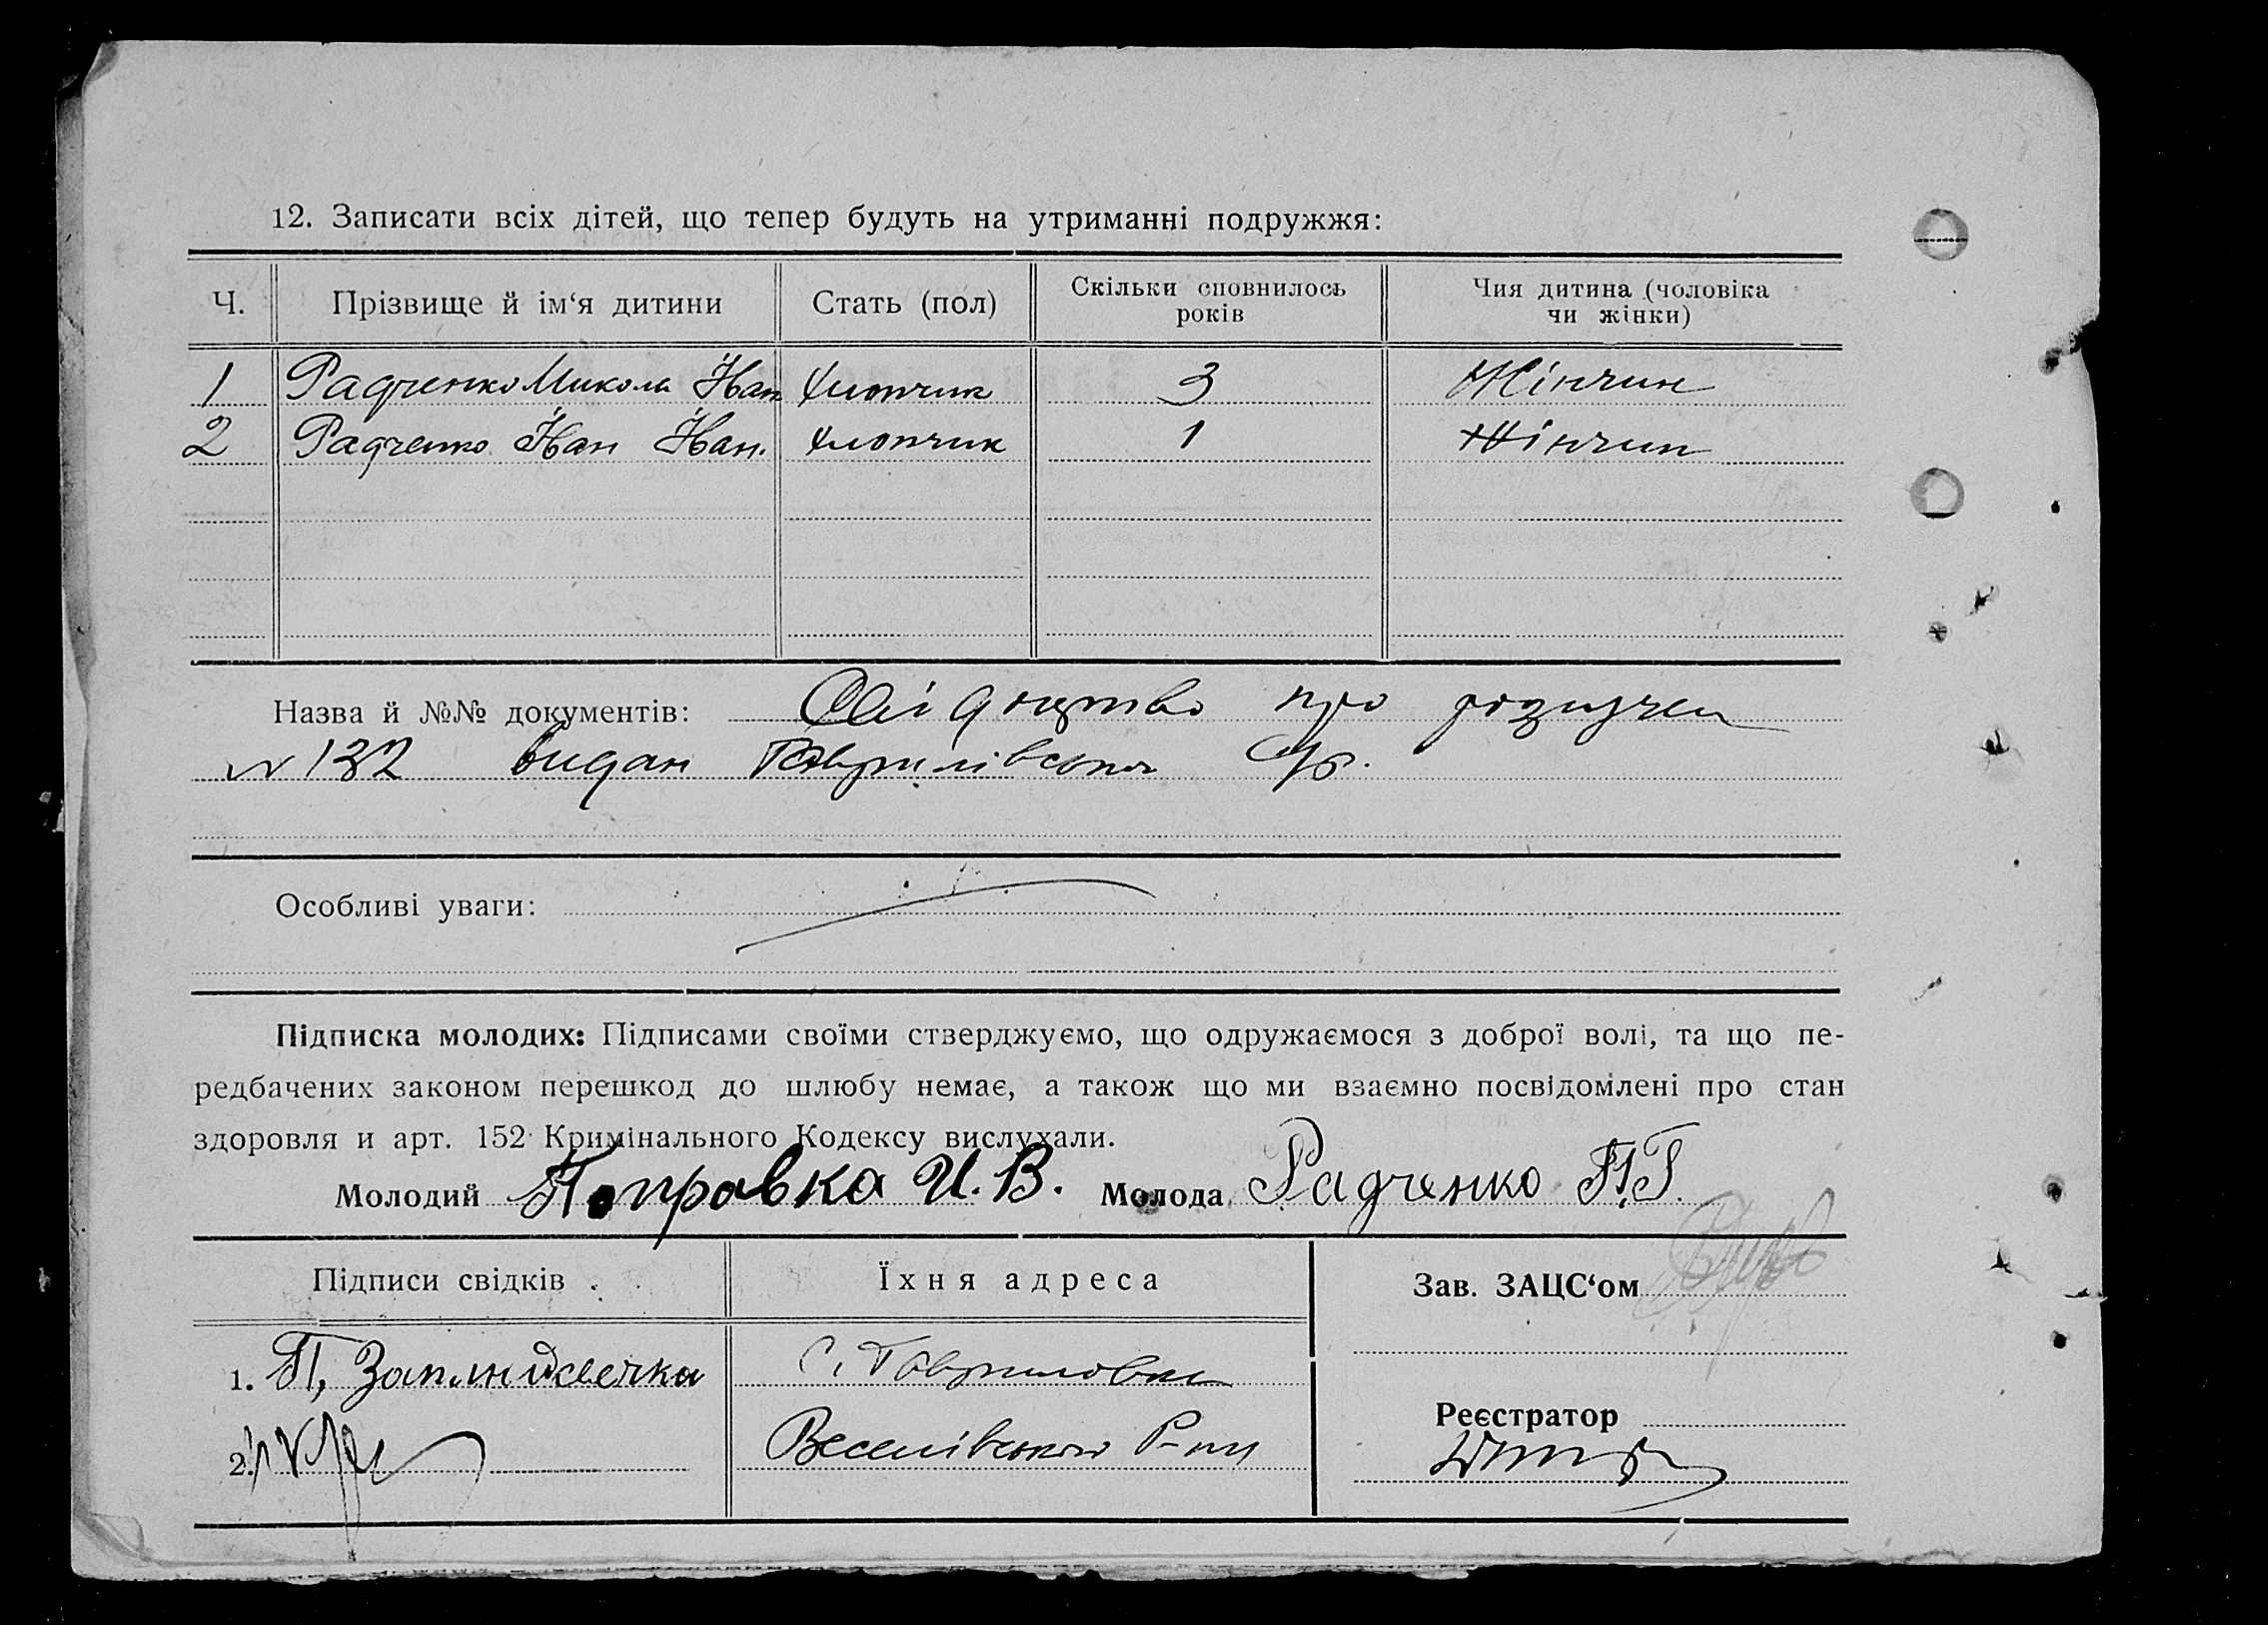 12. Записати всіх дітей, що тепер будуть на утриманні подружжя:
Ч. Прізвище й ім‘я дитини Стать (пол) Скільки сповнилось років Чия дитина (чоловіка чи жінки)
1 Радченко Микола Іван хлопчик 3 Жінчин
2 Радченко Іван Іван. хлопчик 1 Жінчин
Назва й №№ документів: Свідоцтво про розлучен
№ 132 видан Гаврилівською С/р.
Особливі уваги:
Підписка молодих: Підписами своїми стверджуємо, що одружаємося з доброї волі, та що пе-
редбачених законом перешкод до шлюбу немає, а також що ми взаємно посвідомлені про стан
здоровля и арт. 152 Кримінального Кодексу вислухали.
Молодий Поправка И. В. Молода Радченко П. Г.
Підписи свідків Їхня адреса Зав. ЗАЦС‘ом
1. П. с. Гавриловка
Реєстратор
2. Веселівського Р-ну